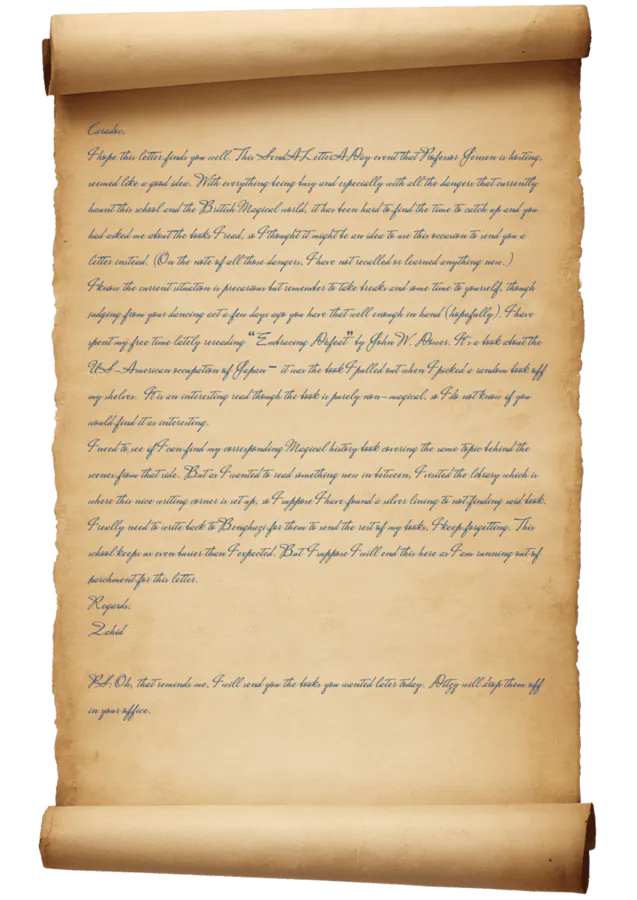 Caradoc,
I hope this letter finds you well. This SendALetterADay event that Professor Jensen is hosting,
seemed like a good idea. With everything being busy and especially with all the dangers that currently
haunt this school and the British Magical world, it has been hard to find the time to catch up and you
had asked me about the books I read, so I thought it might be an idea to use this occasion to send you a
letter instead. (On the note of all those dangers, I have not recalled or learned anything new.)
I know the current situation is precarious but remember to take breaks and some time to yourself, though
judging from your dancing act a few days ago you have that well enough in hand (hopefully). I have
spent my free time lately rereading "Embracing Defeat" by John W. Dower. It's a book about the
US-American occupation of Japan – it was the book I pulled out when I picked a random book off
my shelves. It is an interesting read though the book is purely non-magical, so I do not know if you
would find it as interesting.
I need to see if I can find my corresponding Magical history book covering the same topic behind the
scenes from that side. But as I wanted to read something new in between, I visited the library which is
where this nice writing corner is set up, so I suppose I have found a silver lining to not finding said book.
I really need to write back to Benghazi for them to send the rest of my books, I keep forgetting. This
school keeps us even busier than I expected. But I suppose I will end this here as I am running out of
parchment for this letter.
Regards,
Zahid
PS: Oh, that reminds me, I will send you the books you wanted later today. Ditzy will drop them off
in your office.